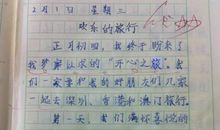 2月1日 星期三
欢乐的旅行
正月初四,我终于盼来了
我梦寐以求的“开心之旅”。我
们一家和爸的好朋友们几家
一起去深圳、香港和澳门旅行。
第一天,我们满怀喜悦的